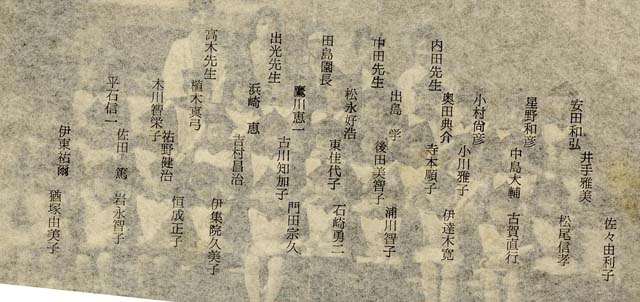 内田先生
中田先生
田島園長
出光先生
高木先生
安田和弘
星野和彦
小村尚彦
奥田典介
出島 学
松永好浩
鷹川恵一
浜崎 恵
植木真弓
木川智栄子
平石信一
井手雅美
中島大輔
小川雅子
寺本順子
後田美智子
東佳代子
古川知加子
吉村昌治
祐野健治
佐田 篤
伊東祐爾
佐々由利子
松尾信孝
古賀直行
伊達木寛
浦川智子
石崎勇二
門田宗久
伊集院久美子
恒成正子
岩永智子
猶塚由美子